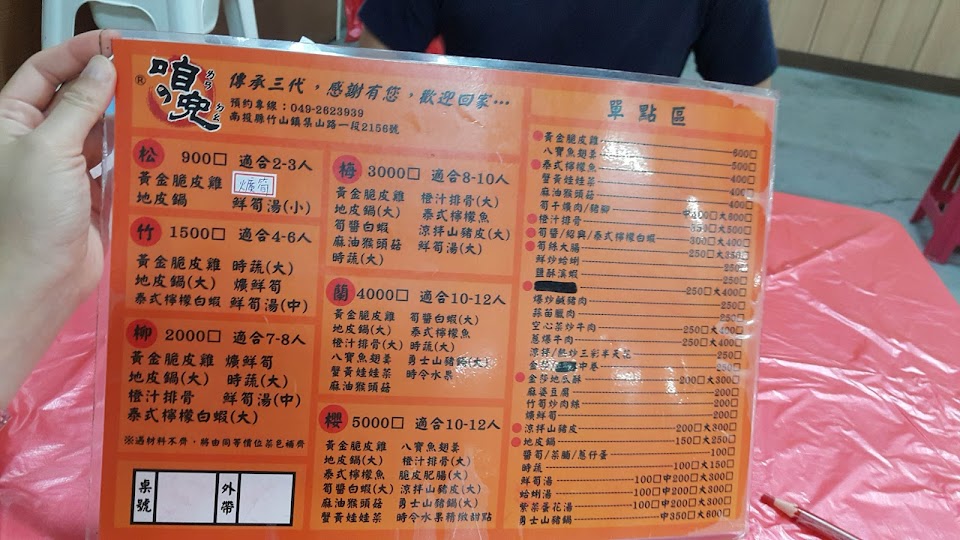 咱ㄟ兜
ㄉㄠ
®
傳承三代，感謝有您，歡迎回家…
預約專線：049-2623939
南投縣竹山鎮集山路一段2156號
松 900□ 適合2-3人
黃金脆皮雞 爌筍
地皮鍋 鮮筍湯(小)
竹 1500□ 適合4-6人
黃金脆皮雞 時蔬(大)
地皮鍋(大) 爌鮮筍
泰式檸檬白蝦 鮮筍湯(中)
柳 2000□ 適合7-8人
黃金脆皮雞 爌鮮筍
地皮鍋(大) 時蔬(大)
橙汁排骨 鮮筍湯(中)
泰式檸檬白蝦(大)
※遇材料不齊，將由同等價位菜色補齊
桌號
外帶
梅 3000□ 適合8-10人
黃金脆皮雞 橙汁排骨(大)
地皮鍋(大) 泰式檸檬魚
筍醬白蝦 涼拌山豬皮(大)
麻油猴頭菇 鮮筍湯(大)
時蔬(大)
蘭 4000□ 適合10-12人
黃金脆皮雞 筍醬白蝦(大)
地皮鍋(大) 泰式檸檬魚
橙汁排骨(大) 時蔬(大)
八寶魚翅羹 勇士山豬鍋(大)
蟹黃娃娃菜 時令水果
麻油猴頭菇
櫻 5000□ 適合10-12人
黃金脆皮雞 八寶魚翅羹
地皮鍋(大) 橙汁排骨(大)
泰式檸檬魚 脆皮肥腸(大)
筍醬白蝦(大) 涼拌山豬皮(大)
麻油猴頭菇 勇士山豬鍋(大)
蟹黃娃娃菜 時令水果精緻甜點
單點區
黃金脆皮雞 600□
八寶魚翅羹 500□
泰式檸檬魚 400□
蟹黃娃娃菜 400□
麻油猴頭菇 500□
筍干爌肉/豬腳 中400□大800□
橙汁排骨 350□大500□
筍醬/紹興/泰式檸檬白蝦 300□大400□
筍絲大腸 250□大350□
鮮炒蛤蜊 250□
鹽酥溪蝦 250□
250□大400□
爆炒鹹豬肉 250□
蒜苗臘肉 250□
空心菜炒牛肉 250□大400□
蔥爆牛肉 250□大400□
涼拌/熱炒三彩半天花 250□
金莎 中卷 250□
金莎地瓜酥 200□大300□
麻婆豆腐 200□
竹筍炒肉絲 200□
爌鮮筍 200□
涼拌山豬皮 200□大300□
地皮鍋 150□大250□
醬筍/菜脯/蔥仔蛋 100□
時蔬 100□大150□
鮮筍湯 100□中200□大300□
蛤蜊湯 100□中200□大300□
紫菜蛋花湯 100□中200□大300□
勇士山豬鍋 中350□大600□